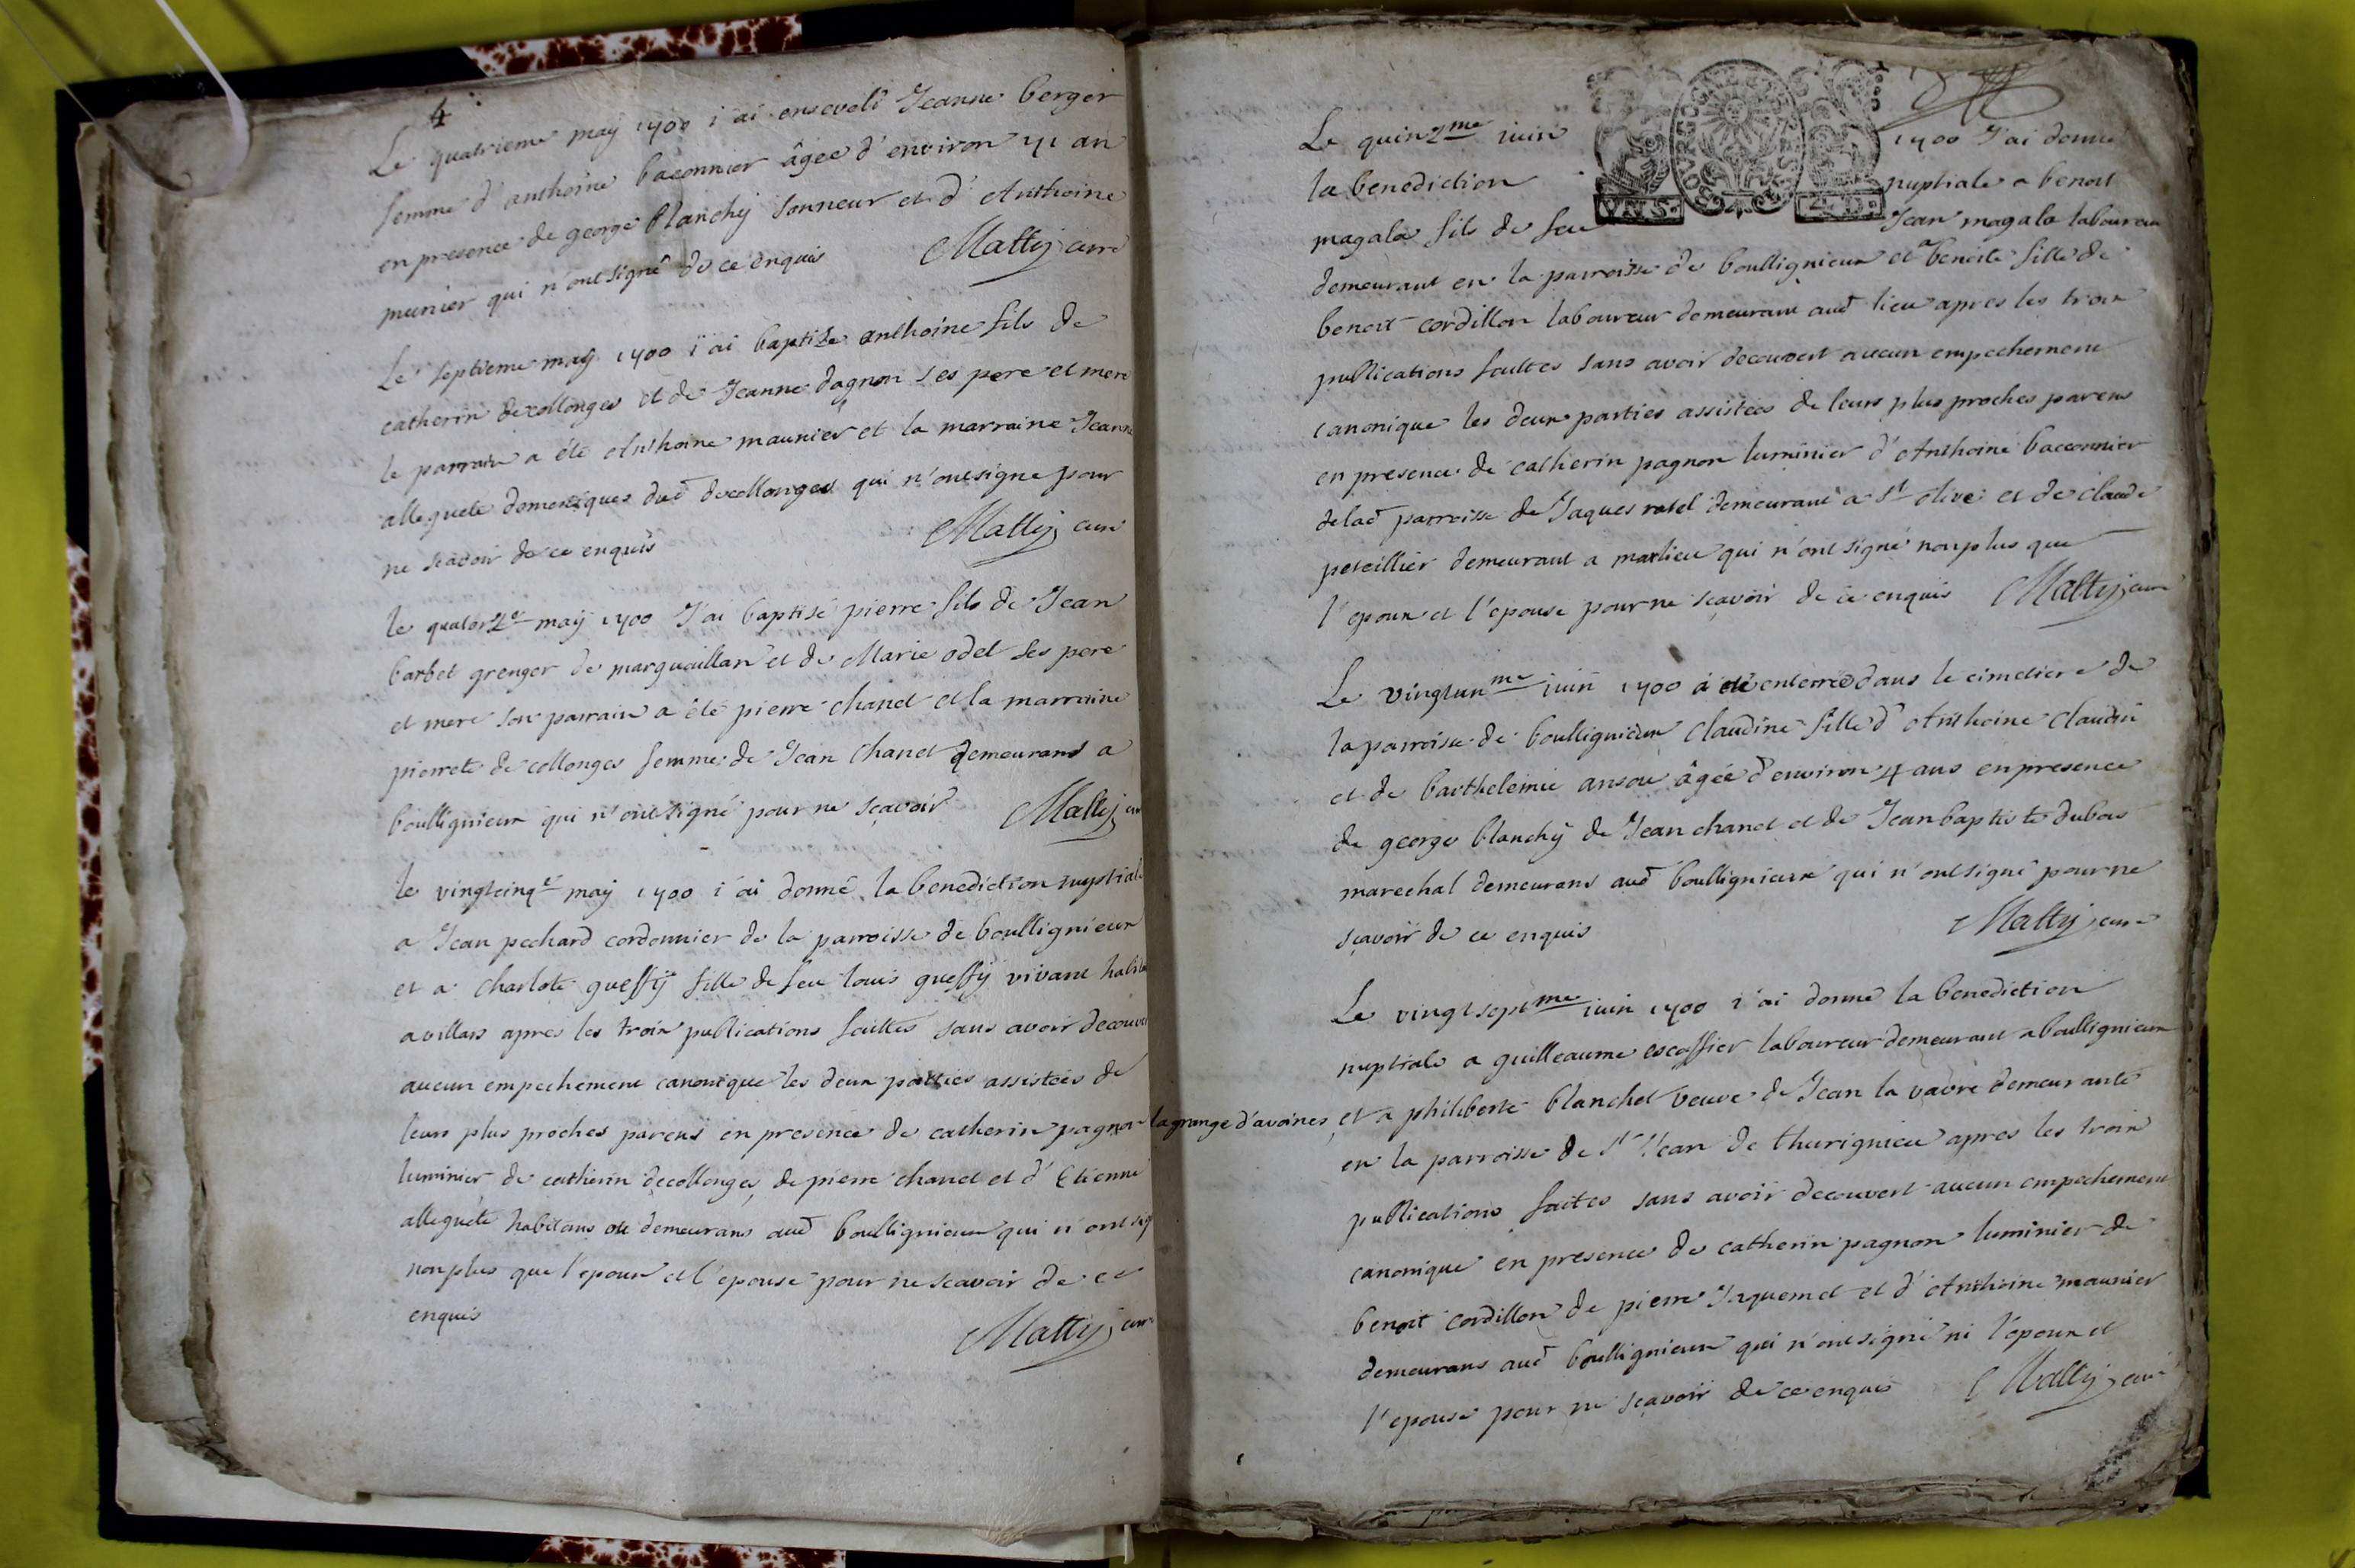 4
Le quatrieme maÿ 1700 i'ai enseveli Jeanne berger
femme d'anthoine baconnier âgée d'environ 71 an
en presence de george blanchÿ sonneur et d'Anthoine
munier qui n'ont signé de ce enquis Mattÿ curé
Le septieme maÿ 1700 i'ai baptisé anthoine fils de
catherin decollonges et de Jeanne dagnon ses pere et mere
le parrain a été Anthoine maunier et la marraine Jeanne
alleguete domestiques dud decollonges qui n'ont signé pour
ne scavoir de ce enquis Mattÿ curé
le quatorze maÿ 1700 J'ai baptisé pierre fils de Jean
barbet grenger de margueillan et de Marie odet ses pere
et mere son parrain a été pierre chanet et la marraine
pierrete de collonges femme de Jean chanet demeurans a
boullignieux qui n'ont signé pour ne scavoir Mattÿ cur
le vingtcinqe maÿ 1700 i'ai donné la benediction nuptiale
a Jean pechard cordonnier de la parroisse de boullignieux
et a charlote gueffÿ fille de feu louis gueffÿ vivant habita
a villars apres les troix publications faittes sans avoir decouve
aucun empechement canonique les deux parties assistées de
leurs plus proches parens en presence de catherin pagnon
luminier de catherin decollonges, de pierre chanet et d'Etienne
alleguete habitans ou demeurans aud boullignieux qui n'ont sig
non plus que l'epoux et l'epouse pour ne scavoir de ce
enquis
Mattÿ curé
Le quinzme iuin 1700 J'ai donné
la benediction nuptiale a benoit
magala fils de feu Jean magala laboureur
demeurant en la parroisse de boullignieux et a benoite fille de
benoit cordillon laboureur demeurant aud lieu apres les troix
publications faittes sans avoir decouvert aucun empechement
canonique les deux parties assistées de leurs plus proches parens
en presence de catherin pagnon luminier d'Anthoine baconnier
delad parroisse de Jaques ratel demeurant a st olive et de claude
peteillier demeurant a marlieu qui n'ont signé non plus que
l'epoux et l'epouse pour ne scavoir de ce enquis Mattÿ curé
Le vingtunme iuin 1700 a été enterrée dans le cimetiere de
la parroisse de boullignieux claudine fille d'Anthoine claudin
et de barthelemie ansou âgée d'environ 4 ans en presence
de george blanchÿ de Jean chanet et de Jean baptiste dubois
marechal demeurans aud boullignieux qui n'ont signé pour ne
scavoir de ce enquis Mattÿ curé
Le vingt septme iuin 1700 i'ai donné la benediction
nuptiale a guilleaume escoffier laboureur demeurant a boullignieux
la grange d'avoines, et a philiberte blanchet veuve de Jean la vavre demeurante
en la parroisse de st Jean de thurignieu apres les troix
publications faites sans avoir decouvert aucun empechement
canonique en presence de catherin pagnon luminier de
benoit cordillon de pierre Jaquemet et d'Anthoine maunier
demeurans aud boullignieux qui n'ont signé ni l'epoux et
l'epouse pour ne scavoir de ce enquis Mattÿ curé